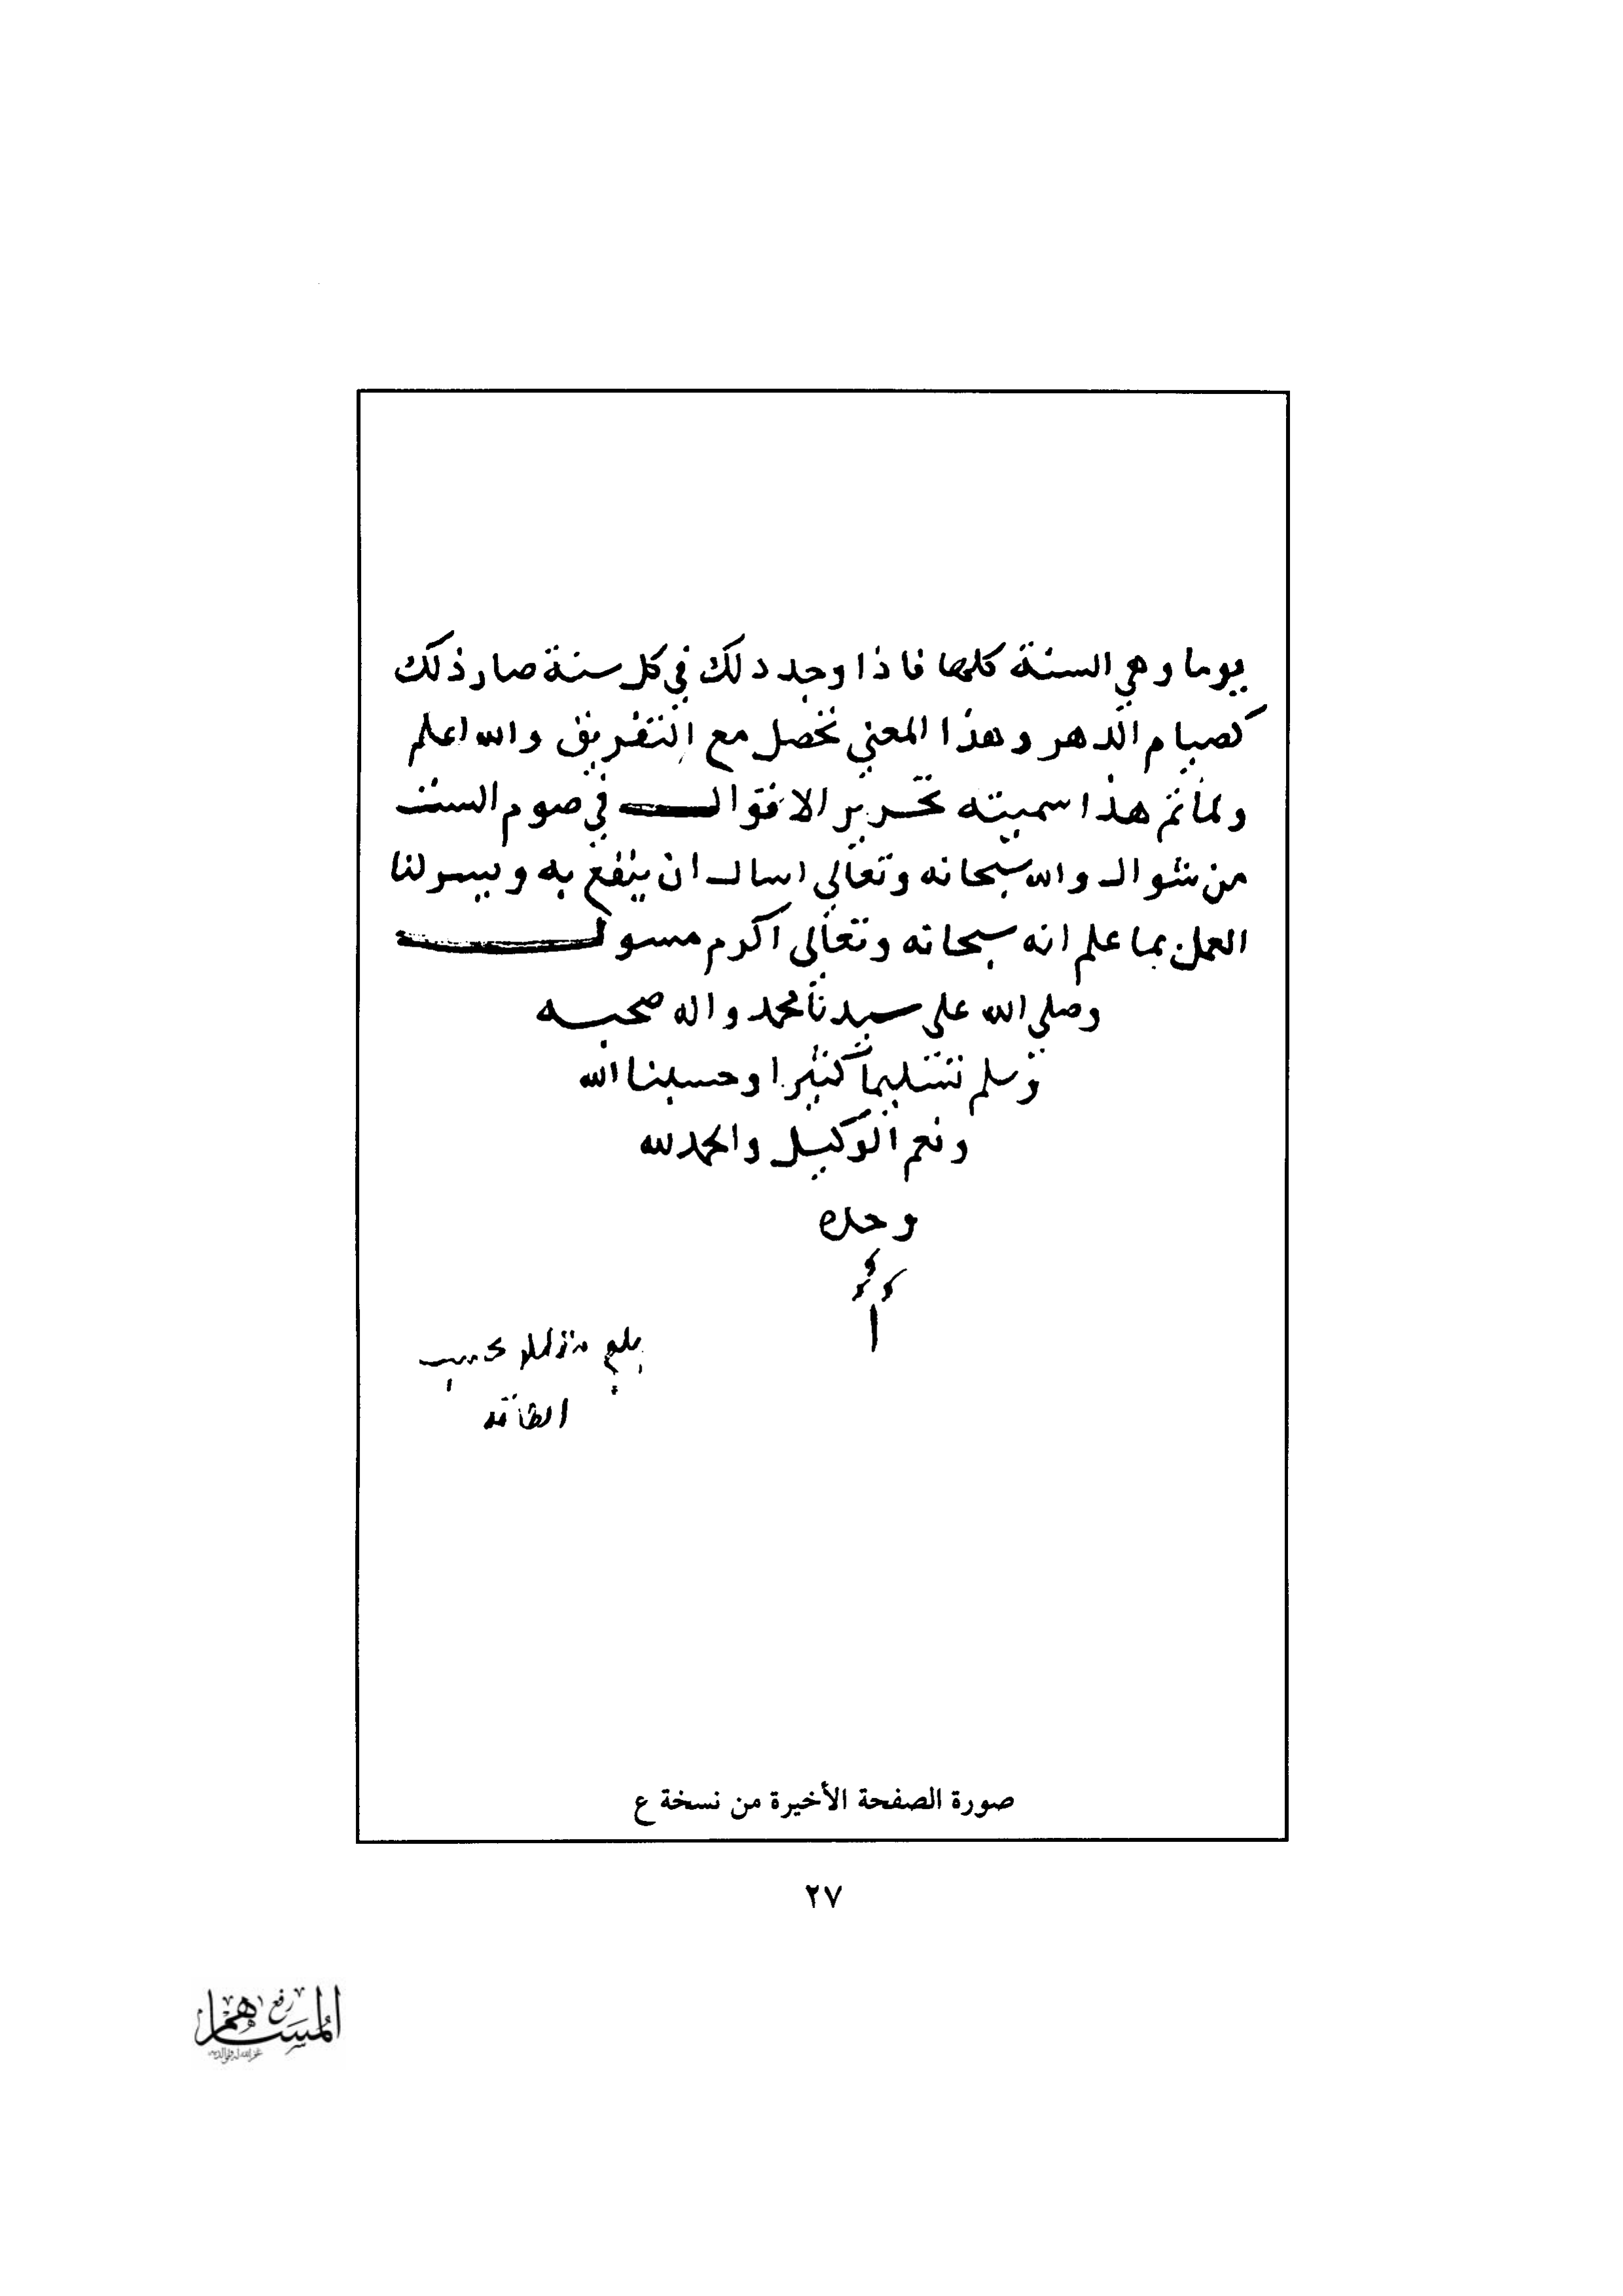 يوما وهي السنة كلها فاذا وجد دلك في كل سنة صار ذلك
كصيام الدهر وهذا المعني تحصل مع التفريق والله اعلم
ولما تم هذا سميته تحرير الاقوال في صوم الست
من شوال والله سبحانه وتعالي اسال ان ينفع به وييسر لنا
العمل بما علم انه سبحانه وتعالى اكرم مسول
وصلي الله علي سيدنا محمد واله صحبه
وسلم تسليما كثيرا وحسبنا الله
ونعم الوكيل والحمد لله
وحده
بلغ مقابلة بحسب
الطاقة
صورة الصفحة الأخيرة من نسخة ع
٢٧
رفع
المساهم
غفر الله له ولوالديه